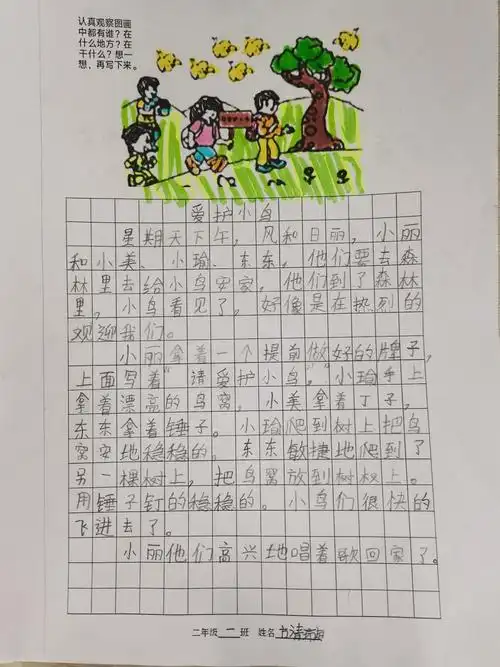 认真观察图画
中都有谁？在
什么地方？在
干什么？想一
想，再写下来。
爱护小鸟
星期天下午，风和日丽，小丽
和小美、小瑜、东东，他们要去森
林里去给小鸟安家，他们到了森林
里，小鸟看见了，好像是在热烈的
欢迎我们。
小丽拿着一个提前做好的牌子，
上面写着“请爱护小鸟”，小瑜手上
拿着漂亮的鸟窝，小美拿着丁子，
东东拿着锤子。小瑜爬到树上把鸟
窝安地稳稳的，东东敏捷地爬到了
另一棵树上，把鸟窝放到树杈上。
用锤子钉的稳稳的。小鸟们很快的
飞进去了。
小丽他们高兴地唱着歌回家了。
二年级一班 姓名